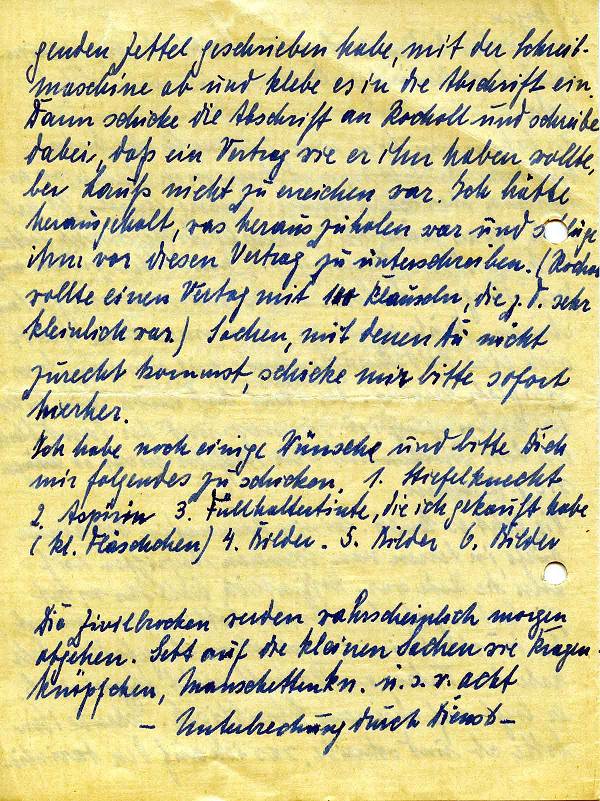 genden Zettel geschrieben habe, mit der Schreib-
maschine ab und klebe es in die Abschrift ein.
Dann schicke die Abschrift an Rocholl und schreibe
dabei, daß ein Vertrag wie er ihn haben wollte,
bei Hauß nicht zu erreichen war. Ich hätte
herausgeholt, was herauszuholen war und schlüge
ihm vor diesen Vertrag zu unterschreiben. (Rocholl
wollte einen Vertag mit 100 Klauseln, die z. T. sehr
kleinlich war.) Sachen, mit denen Du nicht
zurecht kommst, schicke mir bitte sofort
hierher.
Ich habe noch einige Wünsche und bitte Dich
mir folgendes zu schicken. 1. Stiefelknecht
2. Aspirin 3. Füllhaltertinte, die ich gekauft habe
(kl. Fläschchen) 4. Bilder. 5. Bilder 6. Bilder
Die Zivilbrocken werden wahrscheinlich morgen
abgehen. Gebt auf die kleinen Sachen wie Kragen-
knöpfchen, Manschettenkn. u. s. w. acht
— Unterbrechung durch Dienst —